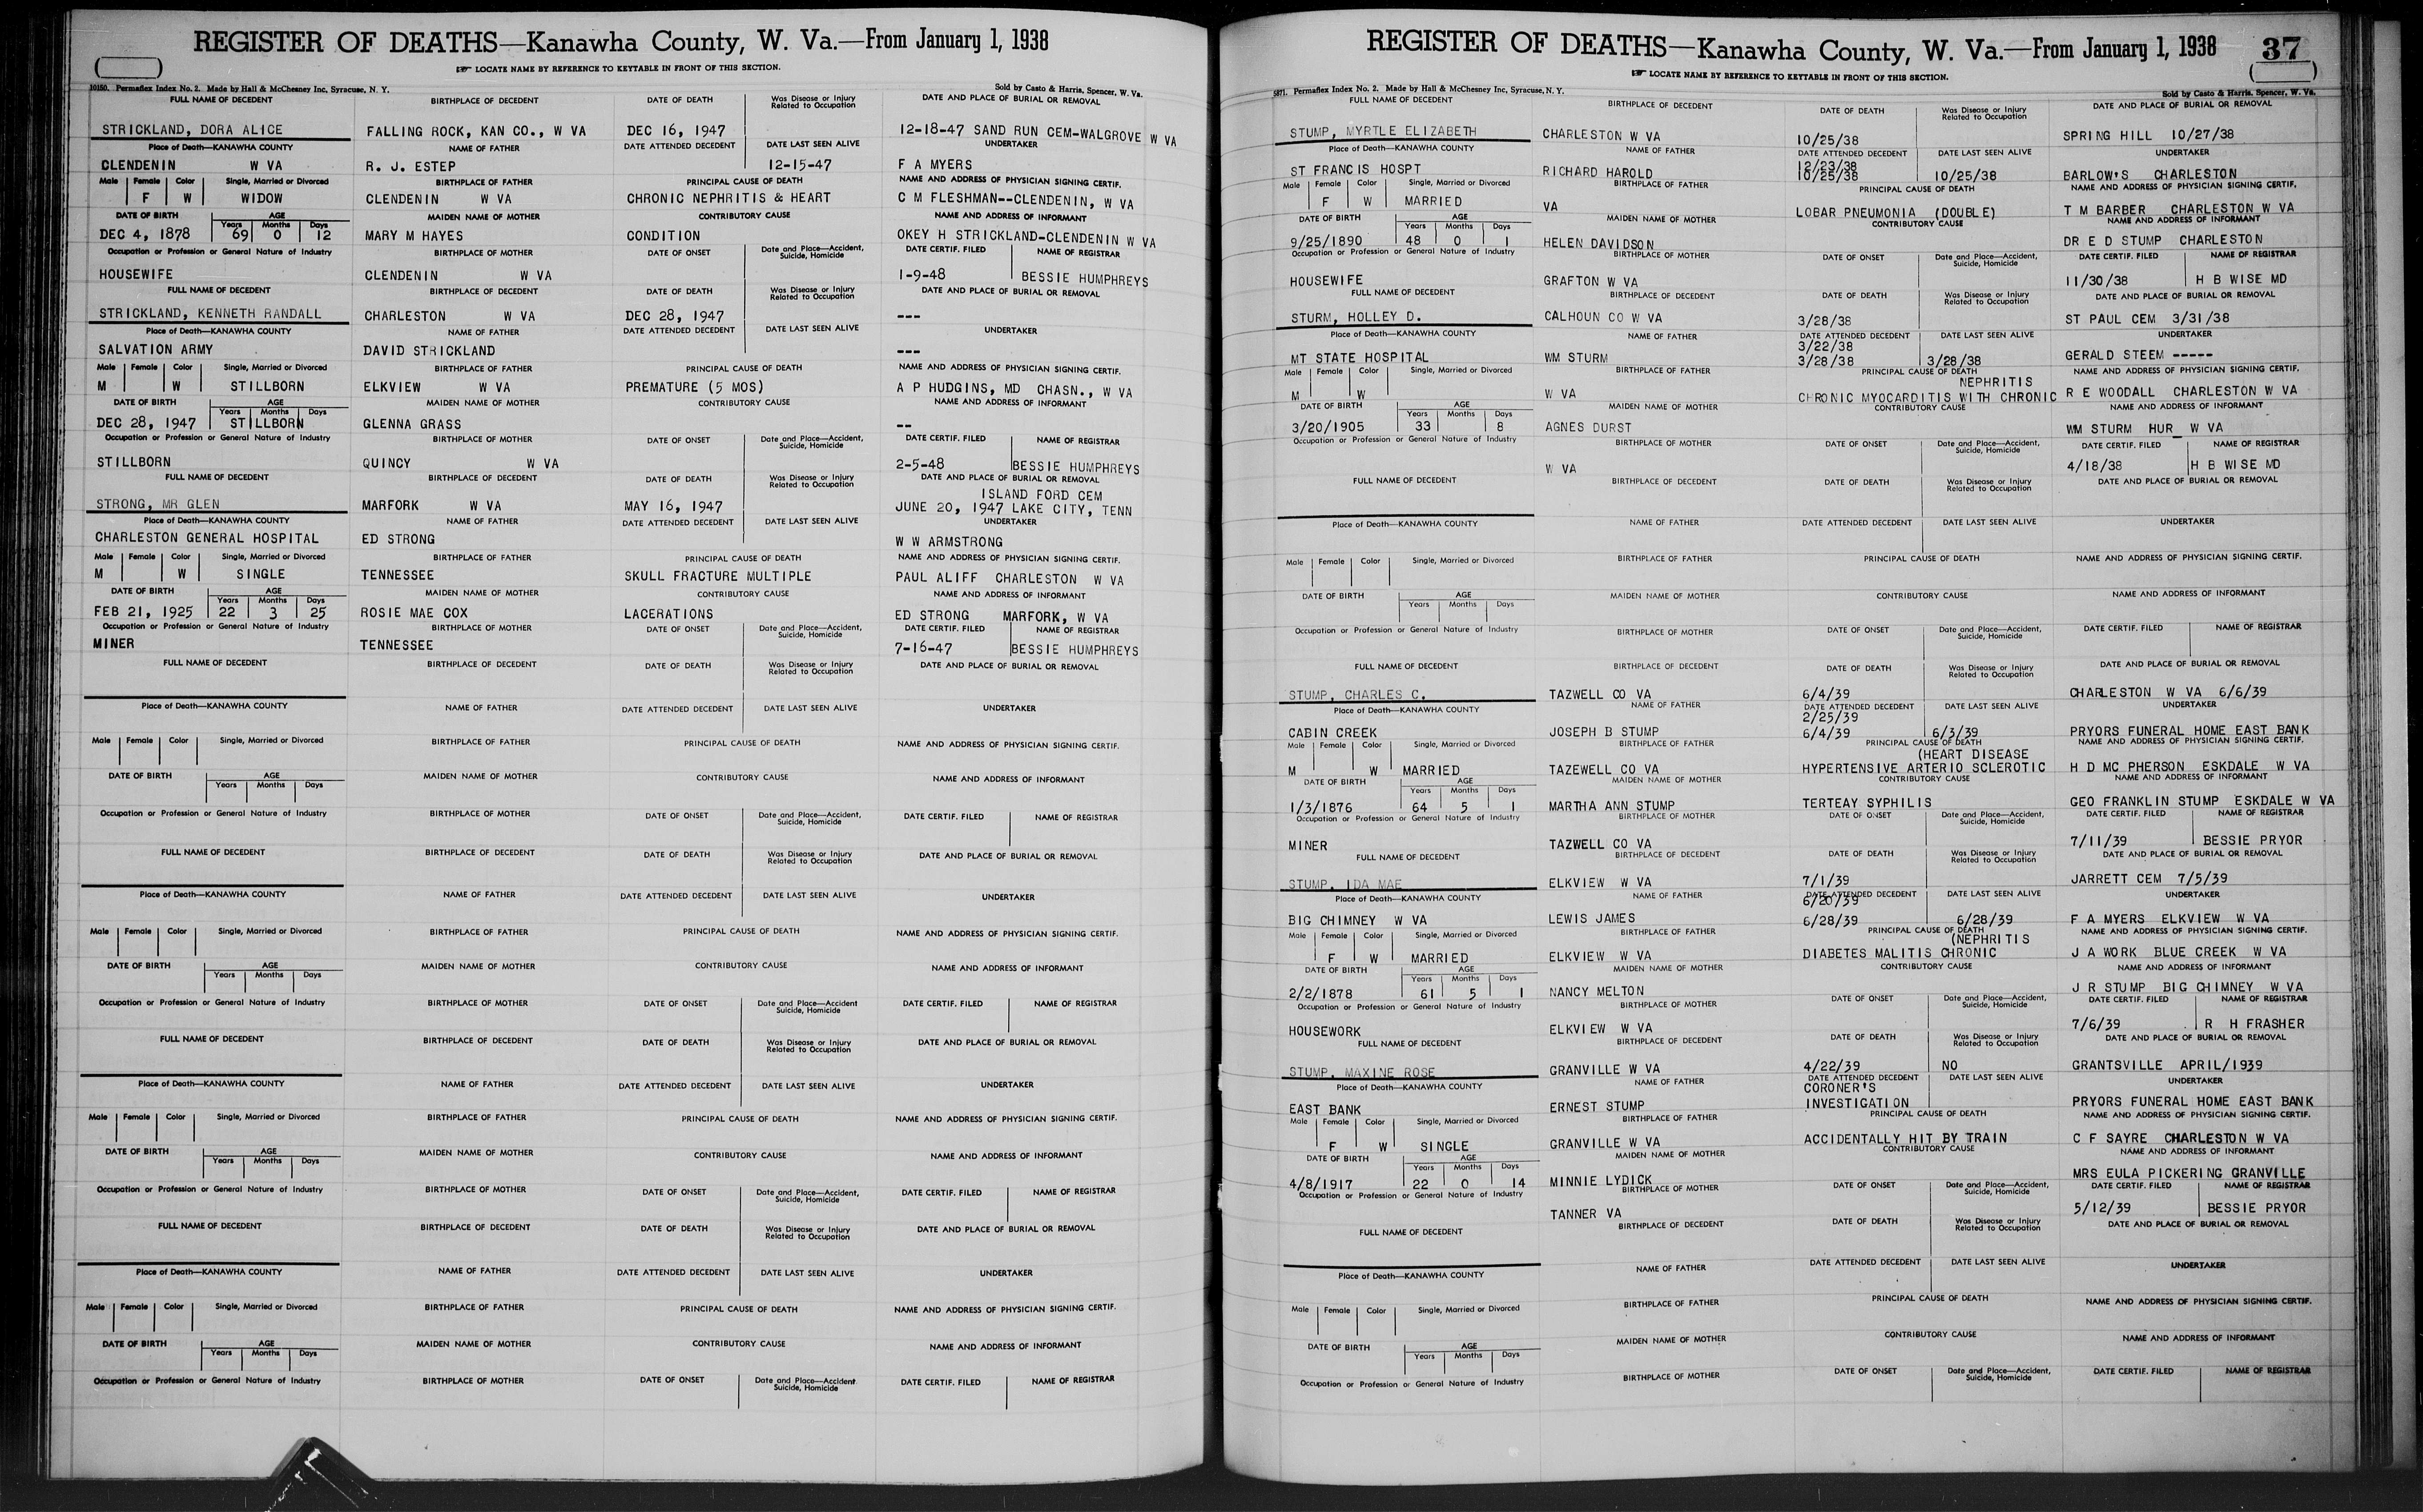 REGISTER OF DEATHS—Kanawha County, W. Va.—From January 1, 1938
LOCATE NAME BY REFERENCE TO KEYTABLE IN FRONT OF THIS SECTION.
10150. Permaflex Index No. 2. Made by Hall & McChesney Inc, Syracuse, N. Y. Sold by Casto & Harris, Spencer, W. Va.
FULL NAME OF DECEDENT BIRTHPLACE OF DECEDENT DATE OF DEATH Was Disease or Injury Related to Occupation DATE AND PLACE OF BURIAL OR REMOVAL
STRICKLAND, DORA ALICE FALLING ROCK, KAN CO., W VA DEC 16, 1947 12-18-47 SAND RUN CEM-WALGROVE W VA
Place of Death—KANAWHA COUNTY NAME OF FATHER DATE ATTENDED DECEDENT DATE LAST SEEN ALIVE UNDERTAKER
CLENDENIN W VA R. J. ESTEP 12-15-47 F A MYERS
Male Female Color Single, Married or Divorced BIRTHPLACE OF FATHER PRINCIPAL CAUSE OF DEATH NAME AND ADDRESS OF PHYSICIAN SIGNING CERTIF.
F W WIDOW CLENDENIN W VA CHRONIC NEPHRITIS & HEART C M FLESHMAN--CLENDENIN, W VA
DATE OF BIRTH AGE Years Months Days MAIDEN NAME OF MOTHER CONTRIBUTORY CAUSE NAME AND ADDRESS OF INFORMANT
DEC 4, 1878 69 0 12 MARY M HAYES CONDITION OKEY H STRICKLAND-CLENDENIN W VA
Occupation or Profession or General Nature of Industry BIRTHPLACE OF MOTHER DATE OF ONSET Date and Place—Accident, Suicide, Homicide DATE CERTIF. FILED NAME OF REGISTRAR
HOUSEWIFE CLENDENIN W VA 1-9-48 BESSIE HUMPHREYS
FULL NAME OF DECEDENT BIRTHPLACE OF DECEDENT DATE OF DEATH Was Disease or Injury Related to Occupation DATE AND PLACE OF BURIAL OR REMOVAL
STRICKLAND, KENNETH RANDALL CHARLESTON W VA DEC 28, 1947 ---
Place of Death—KANAWHA COUNTY NAME OF FATHER DATE ATTENDED DECEDENT DATE LAST SEEN ALIVE UNDERTAKER
SALVATION ARMY DAVID STRICKLAND ---
Male Female Color Single, Married or Divorced BIRTHPLACE OF FATHER PRINCIPAL CAUSE OF DEATH NAME AND ADDRESS OF PHYSICIAN SIGNING CERTIF.
M W STILLBORN ELKVIEW W VA PREMATURE (5 MOS) A P HUDGINS, MD CHASN., W VA
DATE OF BIRTH AGE Years Months Days MAIDEN NAME OF MOTHER CONTRIBUTORY CAUSE NAME AND ADDRESS OF INFORMANT
DEC 28, 1947 STILLBORN GLENNA GRASS --
Occupation or Profession or General Nature of Industry BIRTHPLACE OF MOTHER DATE OF ONSET Date and Place—Accident, Suicide, Homicide DATE CERTIF. FILED NAME OF REGISTRAR
STILLBORN QUINCY W VA 2-5-48 BESSIE HUMPHREYS
FULL NAME OF DECEDENT BIRTHPLACE OF DECEDENT DATE OF DEATH Was Disease or Injury Related to Occupation DATE AND PLACE OF BURIAL OR REMOVAL
ISLAND FORD CEM
STRONG, MR GLEN MARFORK W VA MAY 16, 1947 JUNE 20, 1947 LAKE CITY, TENN
Place of Death—KANAWHA COUNTY NAME OF FATHER DATE ATTENDED DECEDENT DATE LAST SEEN ALIVE UNDERTAKER
CHARLESTON GENERAL HOSPITAL ED STRONG W W ARMSTRONG
Male Female Color Single, Married or Divorced BIRTHPLACE OF FATHER PRINCIPAL CAUSE OF DEATH NAME AND ADDRESS OF PHYSICIAN SIGNING CERTIF.
M W SINGLE TENNESSEE SKULL FRACTURE MULTIPLE PAUL ALIFF CHARLESTON W VA
DATE OF BIRTH AGE Years Months Days MAIDEN NAME OF MOTHER CONTRIBUTORY CAUSE NAME AND ADDRESS OF INFORMANT
FEB 21, 1925 22 3 25 ROSIE MAE COX LACERATIONS ED STRONG MARFORK, W VA
Occupation or Profession or General Nature of Industry BIRTHPLACE OF MOTHER DATE OF ONSET Date and Place—Accident, Suicide, Homicide DATE CERTIF. FILED NAME OF REGISTRAR
MINER TENNESSEE 7-16-47 BESSIE HUMPHREYS
FULL NAME OF DECEDENT BIRTHPLACE OF DECEDENT DATE OF DEATH Was Disease or Injury Related to Occupation DATE AND PLACE OF BURIAL OR REMOVAL
Place of Death—KANAWHA COUNTY NAME OF FATHER DATE ATTENDED DECEDENT DATE LAST SEEN ALIVE UNDERTAKER
Male Female Color Single, Married or Divorced BIRTHPLACE OF FATHER PRINCIPAL CAUSE OF DEATH NAME AND ADDRESS OF PHYSICIAN SIGNING CERTIF.
DATE OF BIRTH AGE Years Months Days MAIDEN NAME OF MOTHER CONTRIBUTORY CAUSE NAME AND ADDRESS OF INFORMANT
Occupation or Profession or General Nature of Industry BIRTHPLACE OF MOTHER DATE OF ONSET Date and Place—Accident, Suicide, Homicide DATE CERTIF. FILED NAME OF REGISTRAR
FULL NAME OF DECEDENT BIRTHPLACE OF DECEDENT DATE OF DEATH Was Disease or Injury Related to Occupation DATE AND PLACE OF BURIAL OR REMOVAL
Place of Death—KANAWHA COUNTY NAME OF FATHER DATE ATTENDED DECEDENT DATE LAST SEEN ALIVE UNDERTAKER
Male Female Color Single, Married or Divorced BIRTHPLACE OF FATHER PRINCIPAL CAUSE OF DEATH NAME AND ADDRESS OF PHYSICIAN SIGNING CERTIF.
DATE OF BIRTH AGE Years Months Days MAIDEN NAME OF MOTHER CONTRIBUTORY CAUSE NAME AND ADDRESS OF INFORMANT
Occupation or Profession or General Nature of Industry BIRTHPLACE OF MOTHER DATE OF ONSET Date and Place—Accident Suicide, Homicide DATE CERTIF. FILED NAME OF REGISTRAR
FULL NAME OF DECEDENT BIRTHPLACE OF DECEDENT DATE OF DEATH Was Disease or Injury Related to Occupation DATE AND PLACE OF BURIAL OR REMOVAL
Place of Death—KANAWHA COUNTY NAME OF FATHER DATE ATTENDED DECEDENT DATE LAST SEEN ALIVE UNDERTAKER
Male Female Color Single, Married or Divorced BIRTHPLACE OF FATHER PRINCIPAL CAUSE OF DEATH NAME AND ADDRESS OF PHYSICIAN SIGNING CERTIF.
DATE OF BIRTH AGE Years Months Days MAIDEN NAME OF MOTHER CONTRIBUTORY CAUSE NAME AND ADDRESS OF INFORMANT
Occupation or Profession or General Nature of Industry BIRTHPLACE OF MOTHER DATE OF ONSET Date and Place—Accident, Suicide, Homicide DATE CERTIF. FILED NAME OF REGISTRAR
FULL NAME OF DECEDENT BIRTHPLACE OF DECEDENT DATE OF DEATH Was Disease or Injury Related to Occupation DATE AND PLACE OF BURIAL OR REMOVAL
Place of Death—KANAWHA COUNTY NAME OF FATHER DATE ATTENDED DECEDENT DATE LAST SEEN ALIVE UNDERTAKER
Male Female Color Single, Married or Divorced BIRTHPLACE OF FATHER PRINCIPAL CAUSE OF DEATH NAME AND ADDRESS OF PHYSICIAN SIGNING CERTIF.
DATE OF BIRTH AGE Years Months Days MAIDEN NAME OF MOTHER CONTRIBUTORY CAUSE NAME AND ADDRESS OF INFORMANT
Occupation or Profession or General Nature of Industry BIRTHPLACE OF MOTHER DATE OF ONSET Date and Place—Accident Suicide, Homicide DATE CERTIF. FILED NAME OF REGISTRAR
REGISTER OF DEATHS—Kanawha County, W. Va.—From January 1, 1938 37
LOCATE NAME BY REFERENCE TO KEYTABLE IN FRONT OF THIS SECTION.
5871. Permaflex Index No. 2. Made by Hall & McChesney Inc, Syracuse, N. Y. Sold by Casto & Harris, Spencer, W. Va.
FULL NAME OF DECEDENT BIRTHPLACE OF DECEDENT DATE OF DEATH Was Disease or Injury Related to Occupation DATE AND PLACE OF BURIAL OR REMOVAL
STUMP, MYRTLE ELIZABETH CHARLESTON W VA 10/25/38 SPRING HILL 10/27/38
Place of Death—KANAWHA COUNTY NAME OF FATHER DATE ATTENDED DECEDENT DATE LAST SEEN ALIVE UNDERTAKER
12/23/38
ST FRANCIS HOSPT RICHARD HAROLD 10/25/38 10/25/38 BARLOW'S CHARLESTON
Male Female Color Single, Married or Divorced BIRTHPLACE OF FATHER PRINCIPAL CAUSE OF DEATH NAME AND ADDRESS OF PHYSICIAN SIGNING CERTIF.
F W MARRIED VA LOBAR PNEUMONIA (DOUBLE) T M BARBER CHARLESTON W VA
DATE OF BIRTH AGE Years Months Days MAIDEN NAME OF MOTHER CONTRIBUTORY CAUSE NAME AND ADDRESS OF INFORMANT
9/25/1890 48 0 1 HELEN DAVIDSON DR E D STUMP CHARLESTON
Occupation or Profession or General Nature of Industry BIRTHPLACE OF MOTHER DATE OF ONSET Date and Place—Accident, Suicide, Homicide DATE CERTIF. FILED NAME OF REGISTRAR
HOUSEWIFE GRAFTON W VA 11/30/38 H B WISE MD
FULL NAME OF DECEDENT BIRTHPLACE OF DECEDENT DATE OF DEATH Was Disease or Injury Related to Occupation DATE AND PLACE OF BURIAL OR REMOVAL
STURM, HOLLEY D. CALHOUN CO W VA 3/28/38 ST PAUL CEM 3/31/38
Place of Death—KANAWHA COUNTY NAME OF FATHER DATE ATTENDED DECEDENT DATE LAST SEEN ALIVE UNDERTAKER
3/22/38
MT STATE HOSPITAL WM STURM 3/28/38 3/28/38 GERALD STEEM -----
Male Female Color Single, Married or Divorced BIRTHPLACE OF FATHER PRINCIPAL CAUSE OF DEATH NAME AND ADDRESS OF PHYSICIAN SIGNING CERTIF.
NEPHRITIS
M W W VA CHRONIC MYOCARDITIS WITH CHRONIC R E WOODALL CHARLESTON W VA
DATE OF BIRTH AGE Years Months Days MAIDEN NAME OF MOTHER CONTRIBUTORY CAUSE NAME AND ADDRESS OF INFORMANT
3/20/1905 33 8 AGNES DURST WM STURM HUR_ W VA
Occupation or Profession or General Nature of Industry BIRTHPLACE OF MOTHER DATE OF ONSET Date and Place—Accident, Suicide, Homicide DATE CERTIF. FILED NAME OF REGISTRAR
W VA 4/18/38 H B WISE MD
FULL NAME OF DECEDENT BIRTHPLACE OF DECEDENT DATE OF DEATH Was Disease or Injury Related to Occupation DATE AND PLACE OF BURIAL OR REMOVAL
Place of Death—KANAWHA COUNTY NAME OF FATHER DATE ATTENDED DECEDENT DATE LAST SEEN ALIVE UNDERTAKER
Male Female Color Single, Married or Divorced BIRTHPLACE OF FATHER PRINCIPAL CAUSE OF DEATH NAME AND ADDRESS OF PHYSICIAN SIGNING CERTIF.
DATE OF BIRTH AGE Years Months Days MAIDEN NAME OF MOTHER CONTRIBUTORY CAUSE NAME AND ADDRESS OF INFORMANT
Occupation or Profession or General Nature of Industry BIRTHPLACE OF MOTHER DATE OF ONSET Date and Place—Accident, Suicide, Homicide DATE CERTIF. FILED NAME OF REGISTRAR
FULL NAME OF DECEDENT BIRTHPLACE OF DECEDENT DATE OF DEATH Was Disease or Injury Related to Occupation DATE AND PLACE OF BURIAL OR REMOVAL
STUMP, CHARLES C. TAZWELL CO VA 6/4/39 CHARLESTON W VA 6/6/39
Place of Death—KANAWHA COUNTY NAME OF FATHER DATE ATTENDED DECEDENT DATE LAST SEEN ALIVE UNDERTAKER
2/25/39
CABIN CREEK JOSEPH B STUMP 6/4/39 6/3/39 PRYORS FUNERAL HOME EAST BANK
Male Female Color Single, Married or Divorced BIRTHPLACE OF FATHER PRINCIPAL CAUSE OF DEATH NAME AND ADDRESS OF PHYSICIAN SIGNING CERTIF.
(HEART DISEASE
M W MARRIED TAZEWELL CO VA HYPERTENSIVE ARTERIO SCLEROTIC H D MC PHERSON ESKDALE W VA
DATE OF BIRTH AGE Years Months Days MAIDEN NAME OF MOTHER CONTRIBUTORY CAUSE NAME AND ADDRESS OF INFORMANT
1/3/1876 64 5 1 MARTHA ANN STUMP TERTEAY SYPHILIS GEO FRANKLIN STUMP ESKDALE W VA
Occupation or Profession or General Nature of Industry BIRTHPLACE OF MOTHER DATE OF ONSET Date and Place—Accident, Suicide, Homicide DATE CERTIF. FILED NAME OF REGISTRAR
MINER TAZWELL CO VA 7/11/39 BESSIE PRYOR
FULL NAME OF DECEDENT BIRTHPLACE OF DECEDENT DATE OF DEATH Was Disease or Injury Related to Occupation DATE AND PLACE OF BURIAL OR REMOVAL
STUMP, IDA MAE ELKVIEW W VA 7/1/39 JARRETT CEM 7/5/39
Place of Death—KANAWHA COUNTY NAME OF FATHER DATE ATTENDED DECEDENT DATE LAST SEEN ALIVE UNDERTAKER
6/20/39
BIG CHIMNEY W VA LEWIS JAMES 6/28/39 6/28/39 F A MYERS ELKVIEW W VA
Male Female Color Single, Married or Divorced BIRTHPLACE OF FATHER PRINCIPAL CAUSE OF DEATH NAME AND ADDRESS OF PHYSICIAN SIGNING CERTIF.
(NEPHRITIS
F W MARRIED ELKVIEW W VA DIABETES MALITIS CHRONIC J A WORK BLUE CREEK W VA
DATE OF BIRTH AGE Years Months Days MAIDEN NAME OF MOTHER CONTRIBUTORY CAUSE NAME AND ADDRESS OF INFORMANT
2/2/1878 61 5 1 NANCY MELTON J R STUMP BIG CHIMNEY W VA
Occupation or Profession or General Nature of Industry BIRTHPLACE OF MOTHER DATE OF ONSET Date and Place—Accident, Suicide, Homicide DATE CERTIF. FILED NAME OF REGISTRAR
HOUSEWORK ELKVIEW W VA 7/6/39 R H FRASHER
FULL NAME OF DECEDENT BIRTHPLACE OF DECEDENT DATE OF DEATH Was Disease or Injury Related to Occupation DATE AND PLACE OF BURIAL OR REMOVAL
STUMP, MAXINE ROSE GRANVILLE W VA 4/22/39 NO GRANTSVILLE APRIL/1939
Place of Death—KANAWHA COUNTY NAME OF FATHER DATE ATTENDED DECEDENT DATE LAST SEEN ALIVE UNDERTAKER
CORONER'S
EAST BANK ERNEST STUMP INVESTIGATION PRYORS FUNERAL HOME EAST BANK
Male Female Color Single, Married or Divorced BIRTHPLACE OF FATHER PRINCIPAL CAUSE OF DEATH NAME AND ADDRESS OF PHYSICIAN SIGNING CERTIF.
F W SINGLE GRANVILLE W VA ACCIDENTALLY HIT BY TRAIN C F SAYRE CHARLESTON W VA
DATE OF BIRTH AGE Years Months Days MAIDEN NAME OF MOTHER CONTRIBUTORY CAUSE NAME AND ADDRESS OF INFORMANT
4/8/1917 22 0 14 MINNIE LYDICK MRS EULA PICKERING GRANVILLE
Occupation or Profession or General Nature of Industry BIRTHPLACE OF MOTHER DATE OF ONSET Date and Place—Accident, Suicide, Homicide DATE CERTIF. FILED NAME OF REGISTRAR
TANNER VA 5/12/39 BESSIE PRYOR
FULL NAME OF DECEDENT BIRTHPLACE OF DECEDENT DATE OF DEATH Was Disease or Injury Related to Occupation DATE AND PLACE OF BURIAL OR REMOVAL
Place of Death—KANAWHA COUNTY NAME OF FATHER DATE ATTENDED DECEDENT DATE LAST SEEN ALIVE UNDERTAKER
Male Female Color Single, Married or Divorced BIRTHPLACE OF FATHER PRINCIPAL CAUSE OF DEATH NAME AND ADDRESS OF PHYSICIAN SIGNING CERTIF.
DATE OF BIRTH AGE Years Months Days MAIDEN NAME OF MOTHER CONTRIBUTORY CAUSE NAME AND ADDRESS OF INFORMANT
Occupation or Profession or General Nature of Industry BIRTHPLACE OF MOTHER DATE OF ONSET Date and Place—Accident, Suicide, Homicide DATE CERTIF. FILED NAME OF REGISTRAR